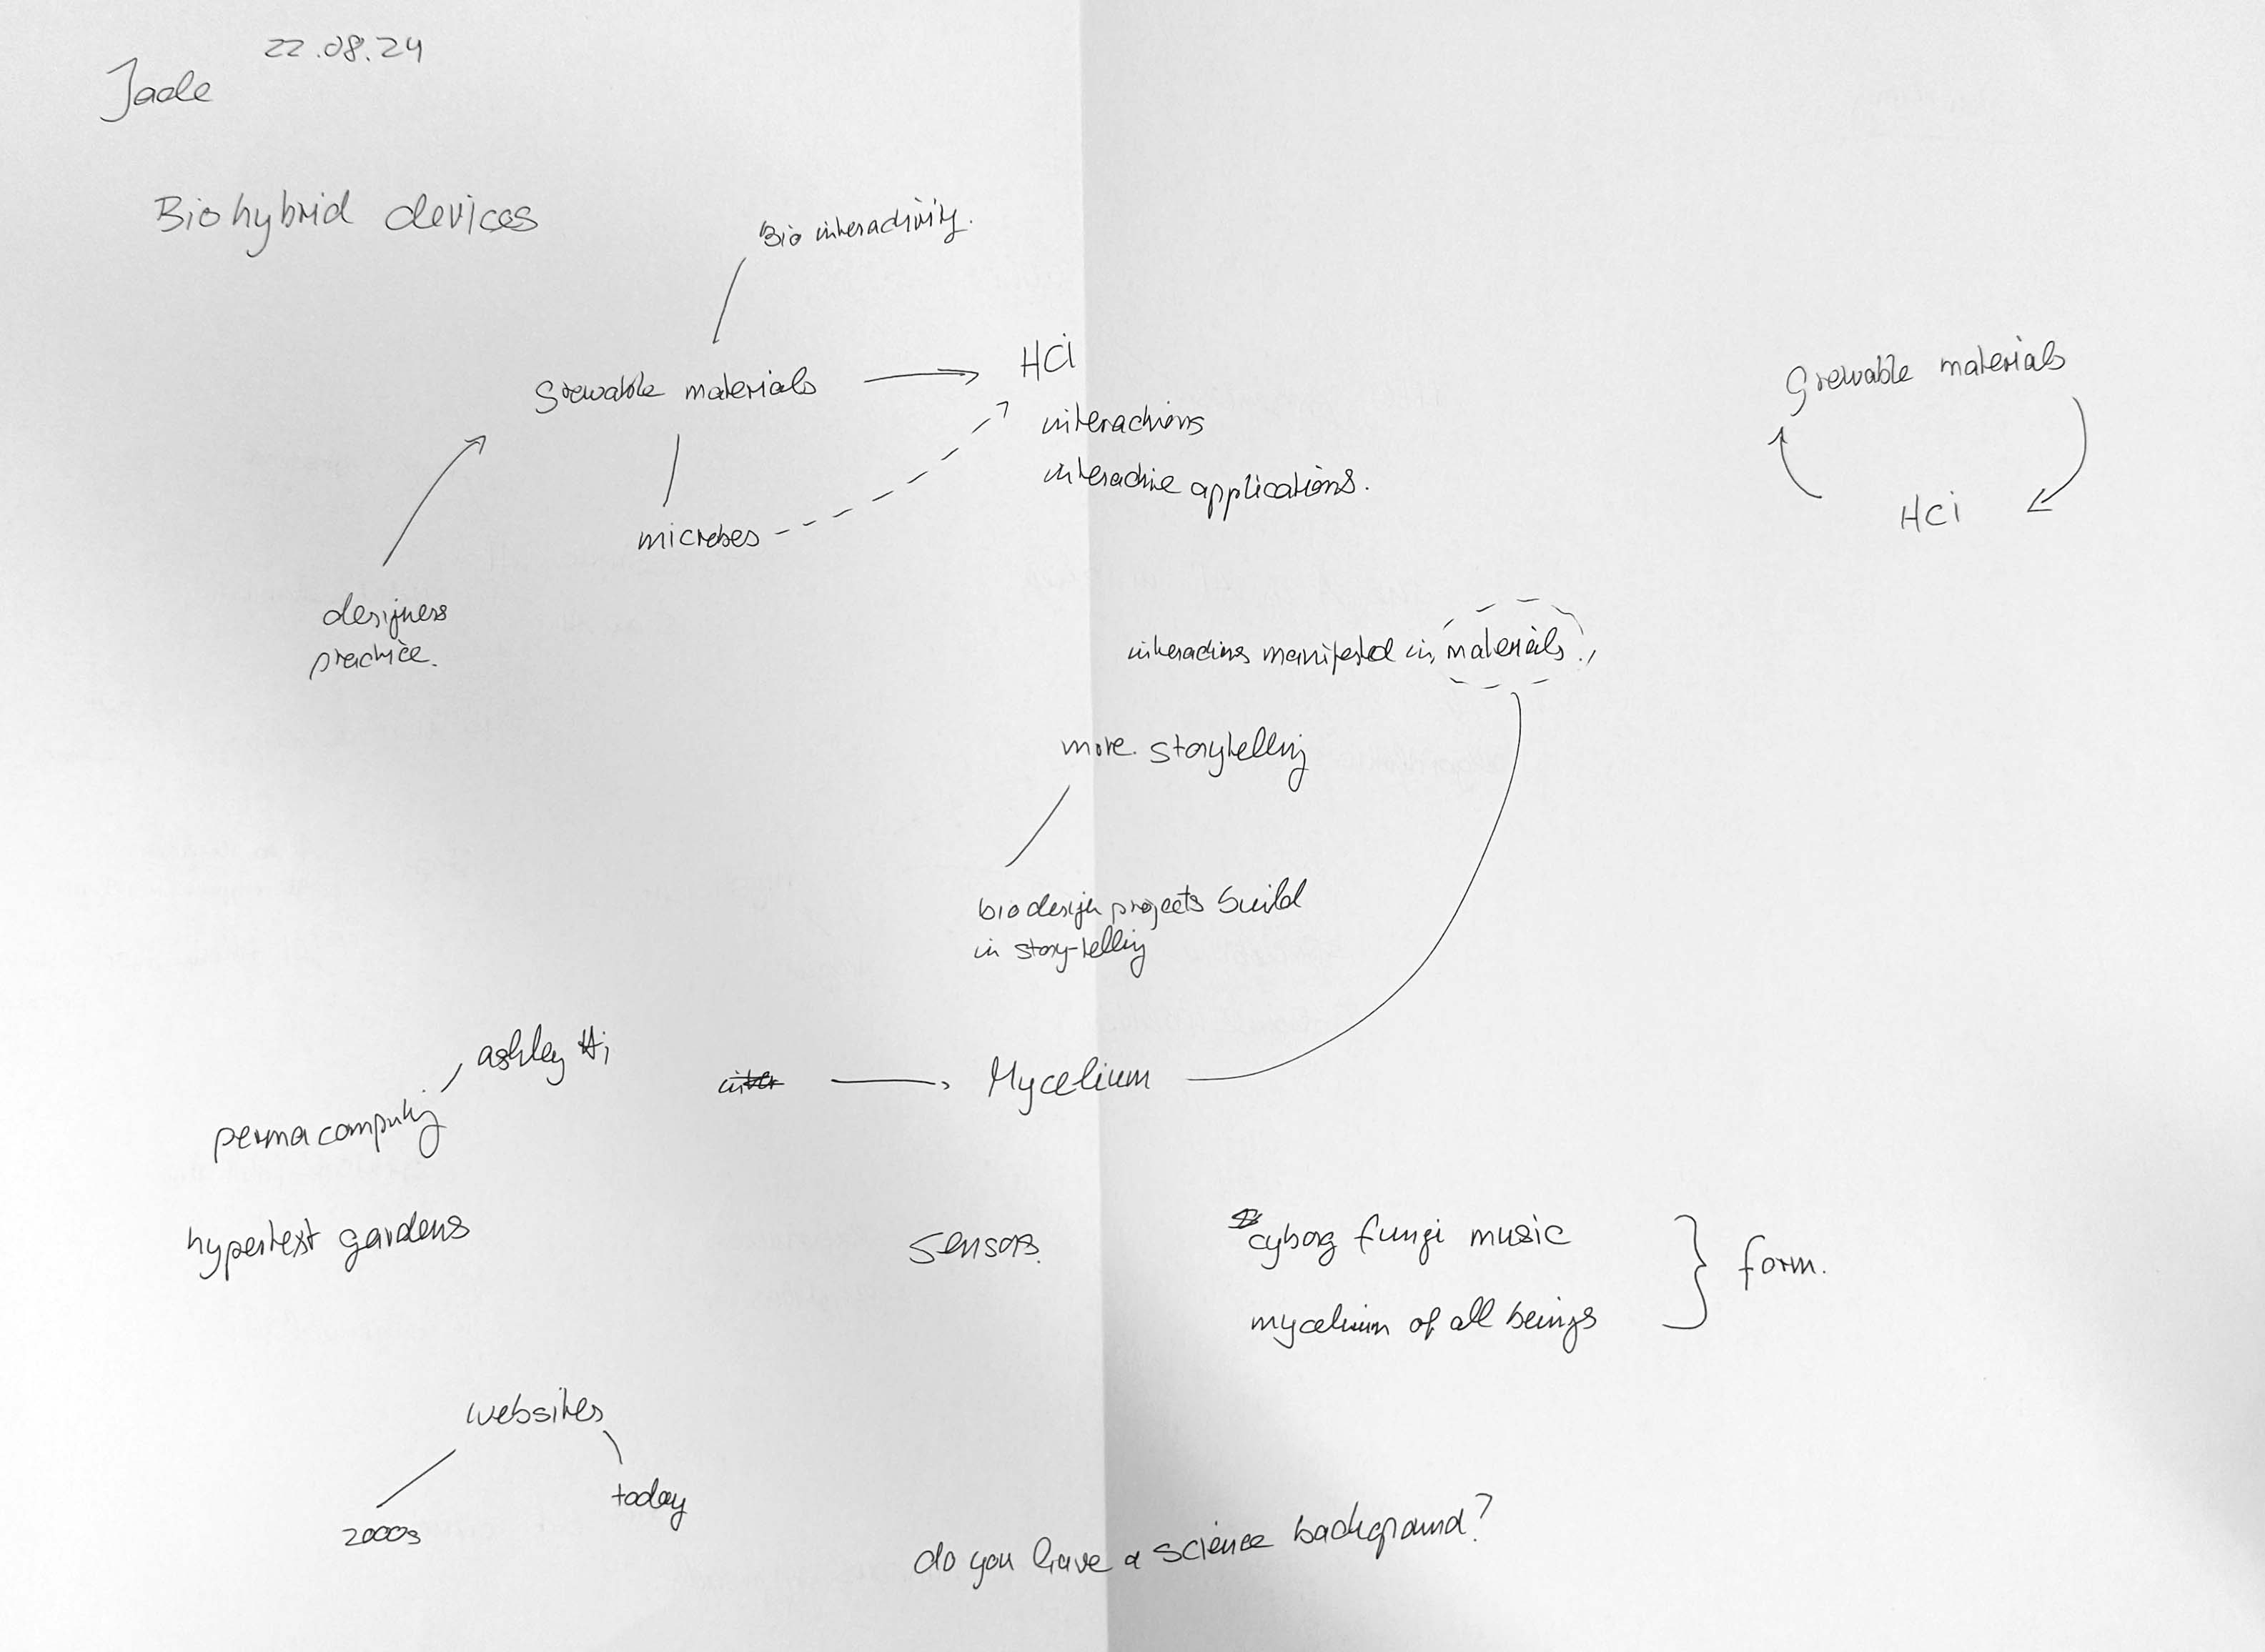 22.08.24
Jade
Biohybrid devices
Bio interactivity.
growable materials
HCI
interactions
interactive applications.
microbes
designers
practice.
growable materials
HCi
interactions manifested in materials.
more storytelling
biodesign projects build
in story-telling
ashley Hi
permacomputing
inter
Mycelium
hypertext gardens
sensors.
cyborg fungi music
mycelium of all beings
form.
websites
2000s
today
do you have a science background?